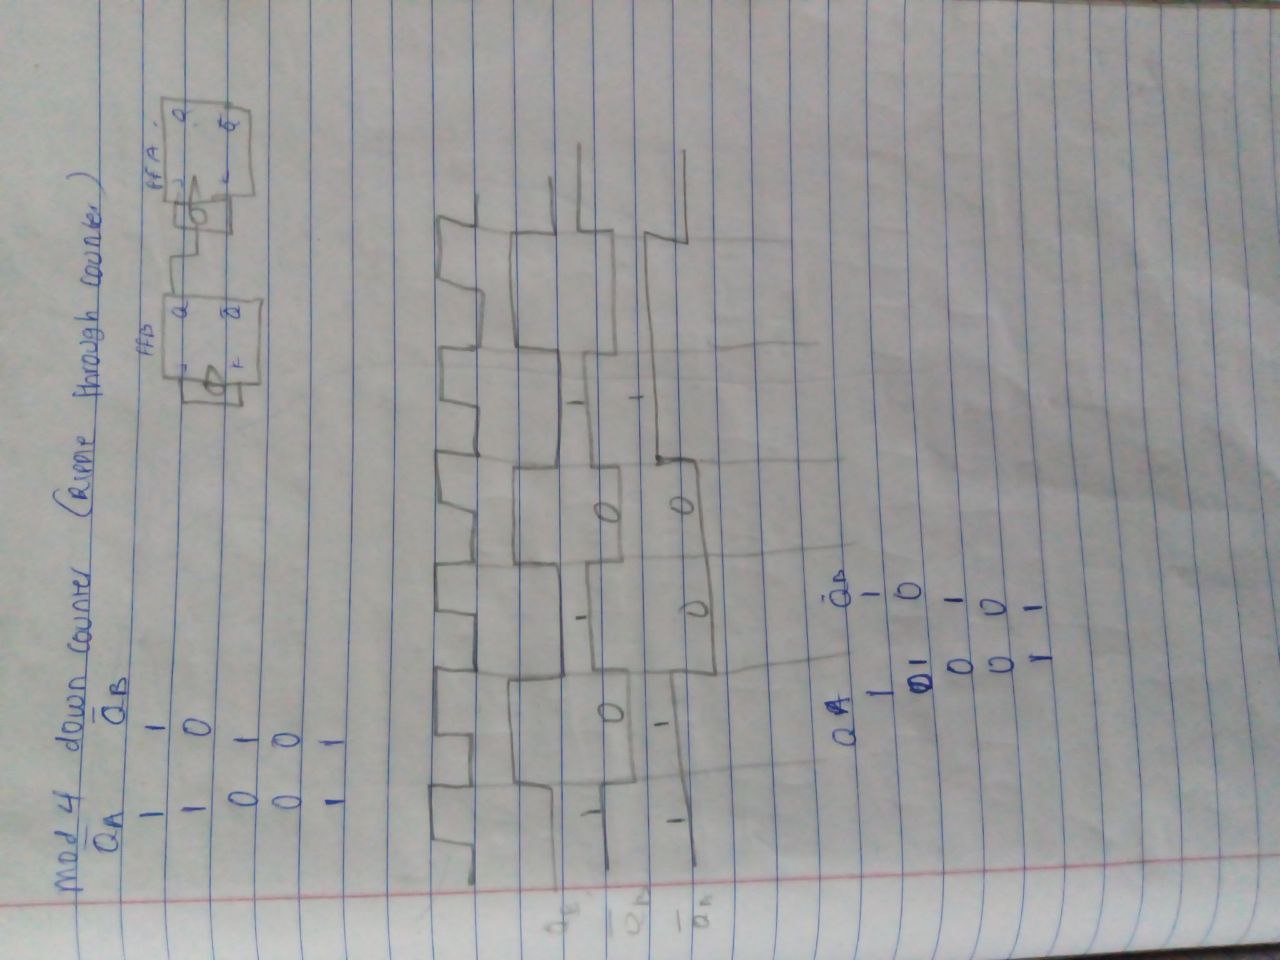 mod 4 down counter (Ripple through counter)
Q̅A Q̅B
1 1
1 0
0 1
0 0
1 1
FFB FFA
J Q J Q
K Q̅ K Q̅
QB
1 0 1 0 1
Q̅B
1 1 0 0 1
Q̅A
QA Q̅B
1 1
1 0
0 1
0 0
1 1